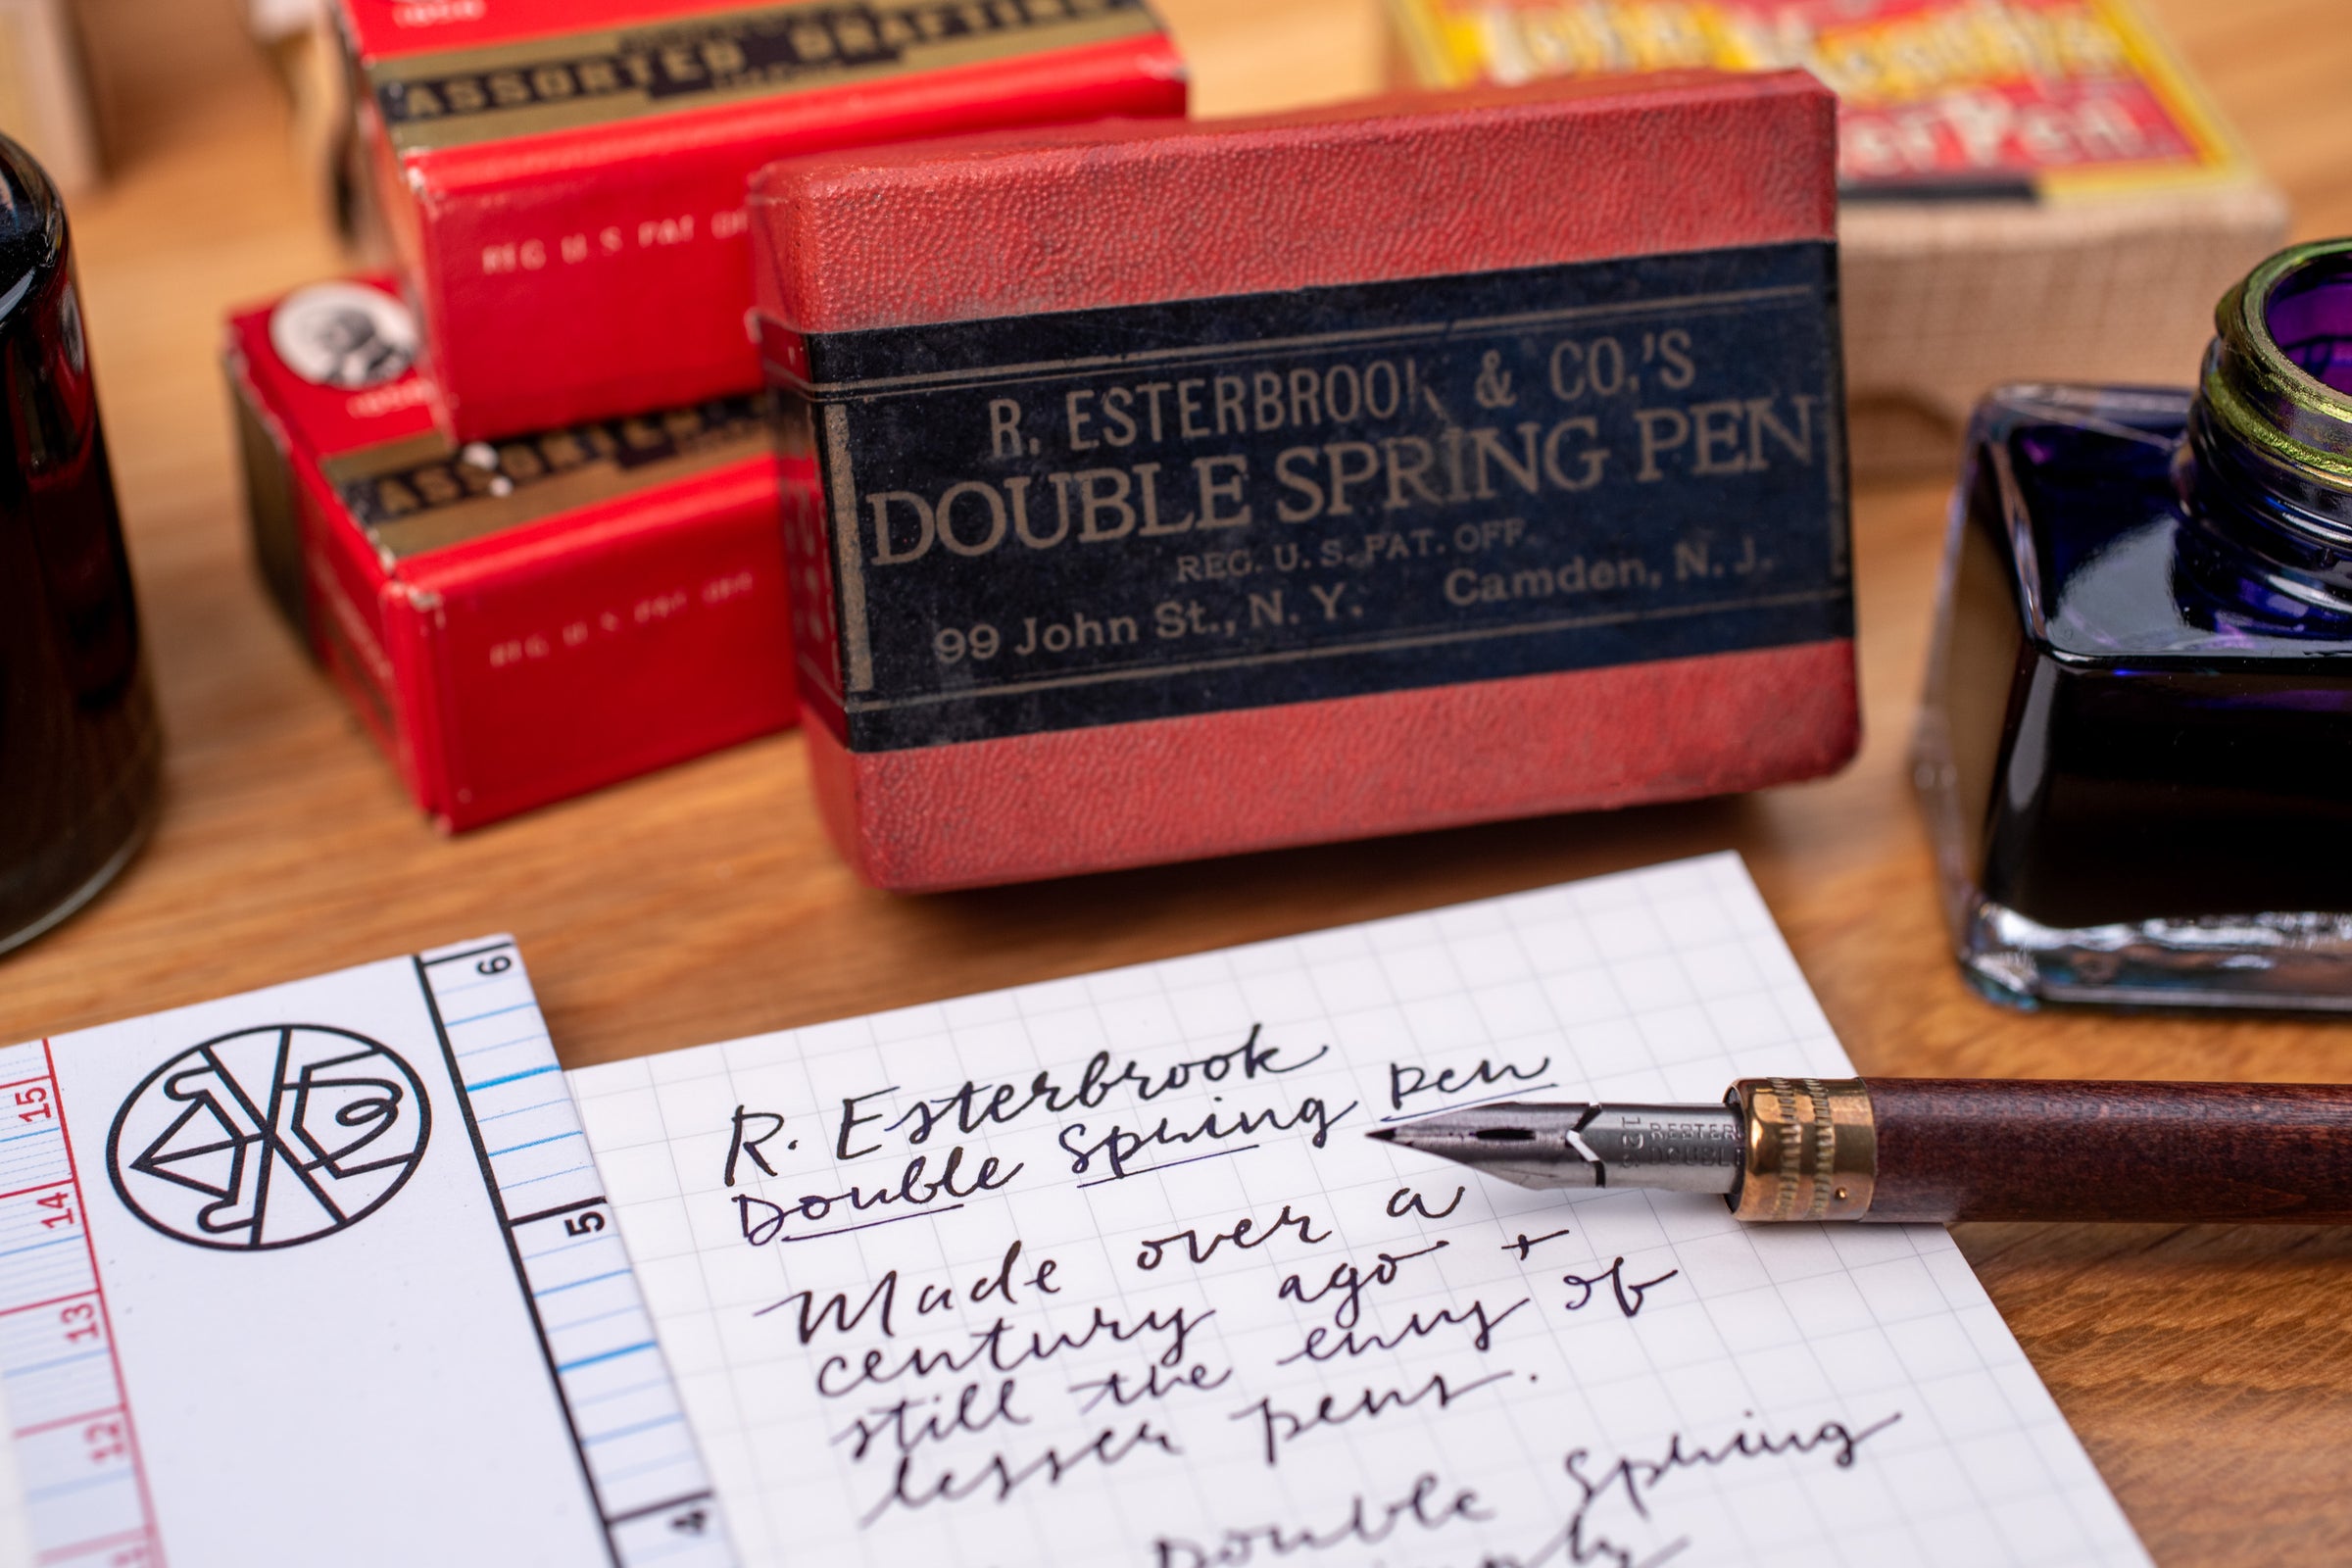 ASSORTED DRAFTING
REG U.S PAT OFF
ASSORTED
REG U.S PAT OFF
R. ESTERBROOK & CO.'S
DOUBLE SPRING PEN
REG. U. S. PAT. OFF.
99 John St., N. Y. Camden, N. J.
R. Esterbrook
Double Spring pen
Made over a
century ago +
still the envy of
lesser pens.
Double Spring
ESTER
DOUBL
6
5
4
15
14
13
12